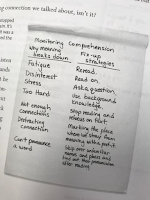 g connection we talked about, isn't it?
Monitoring Comprehension
Why meaning breaks down
Fix up strategies
Fatigue
Reread.
Disinterest
Read on.
Stress
Ask a question.
Too Hard
Use background
knowledge.
Not enough
connections
Stop reading and
refocus on text.
Distracting
connection
Mark the place
where you stray from
meaning within
Can't pronounce
a word
Skip over unfamiliar
names and places and
find out their pronunciation
after reading.